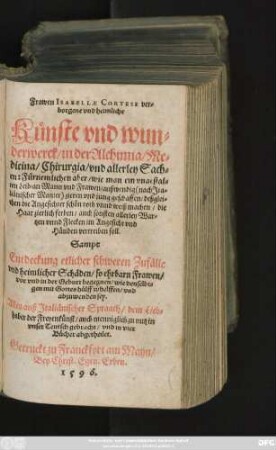 Frawen ISABELLÆ CORTESE ver-
borgene vnd heimliche
Künste vnd wun-
derwerck/ in der Alchimia/ Me-
dicina/ Chirurgia/ vnd allerley Sach-
en: Fürnemlichen aber/ wie man ein
Leib an Mann vnd Frawen außwendig/ nach Ita-
liänischer Manier/ zieren vnd jung geschaffen/ deßglei-
chen die Angesichter schön roth vnd weiß machen/ die
Haar zierlich ferben/ auch sonsten allerley War-
tzen vnnd Flecken im Angesicht vnd
Händen vertreiben soll.
Sampt
Entdeckung etlicher schweren Zufälle
vnd heimlicher Schäden/ so ehrbarn Frawen/
vor vnd in der Geburt begegnen/ wie denselbi-
gen mit Gottes hülff zu helffen/ vnd
abzuwenden sey.
Alles auß Italiänischer Spraach/ dem
haber der Freyenkünst/ auch menniglich zu nutz in
vnser Teutsch gebracht/ vnd in vier
Bücher abgetheilet.
Getruckt zu Franckfort am Mayn/
Bey Christ. Egen. Erben.
1596.